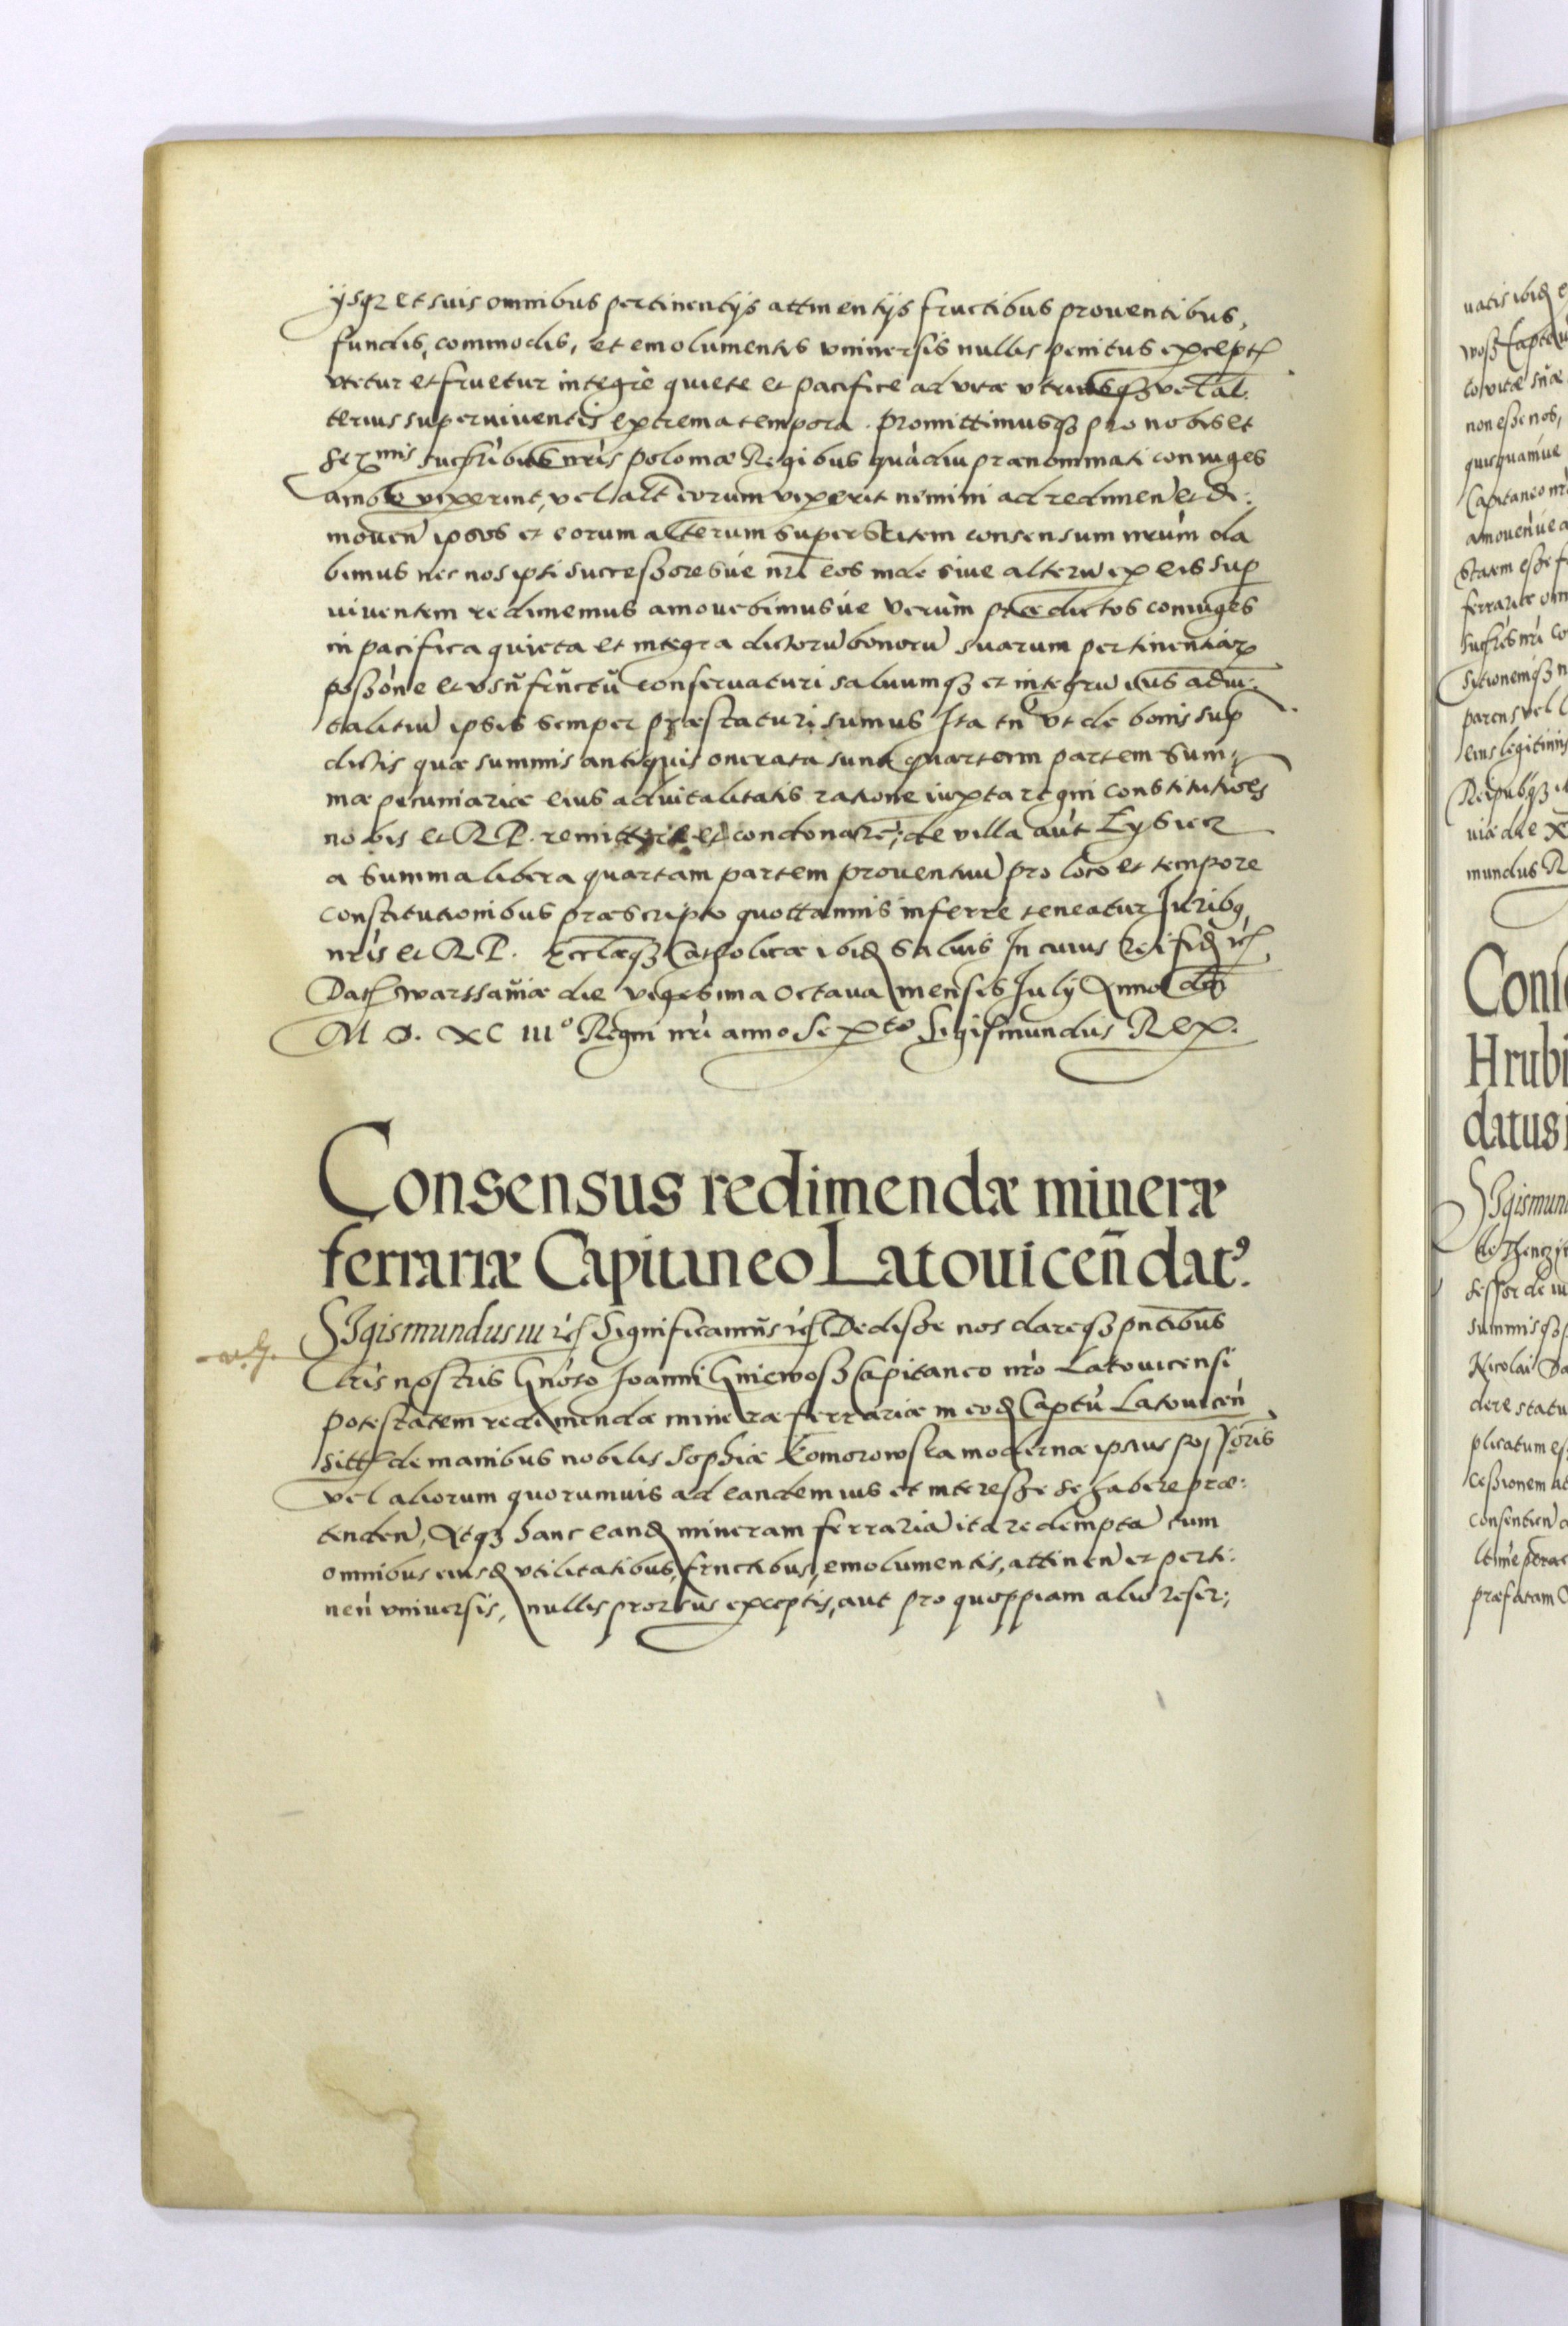 ijsq₃ et suis omnibus pertinentijs attinentijs fructibus prouentibus,
fundis, commodis, et emolumentis vniuersis nullis penitus except
vtetur et fruetur integrè quiete et pacifice ad vitæ vtriusqȝ vel al-
terius superuiuentis extrema tempora. Promittimusqȝ pro nobis et
Ser^mis succrib̃s nr̃is Poloniæ Regibus quàdiu prænominati coniuges
ambo vixerint, vel alt̃ eorum vixerit nemini ad redimeñ et di-
moueñ ipsos et eorum alterum superstitem consensum nrũm da
bimus nec nos ipsi successoresúe nr̃i eos inde siue alterũ ex eis sup
viuentem redimemus amouebimusúe Verùm prædictos coniuges
in pacifica quieta et integra dictorũ bonorũ suarum pertinentiar
posßõne et vsũfructũ conseruaturi saluumqȝ et integrũ ius aduit
talitiũ ipsis semper præstaturi sumus Ita tñ vt de bonis sup
dictis quæ summis antiquis onerata sunt quartam partem sum-
mæ pecuniariæ eius aduitalitatis ratione iuxta regni constitutiões
nobis et R P. remittere et condonare; de villa aũt Lysiec
a summa libera quartam partem prouentuũ pro loco et tempore
Constitutionibus præscripto quottannis inferre teneatur Juribq
nrîs et R P. Eccl̃æqȝ Catholicæ ibid saluis In cuius rei fid etc
Dat Warssauiæ die vigesima Octaua mensis July Anno dñi
M D. XC III° Regni nr̃i anno Sexto Sigismundus Rex.
Consensus redimendæ mineræ
ferrariæ Capitaneo Latouiceñ dat⁹.
SIgismundus III etc Significamus etc Dedisse nos dareqȝ pñtibus
Lr̃is nostris Gñoso Joanni Gniewosz Capitaneo nr̃o Latouicensi
potestatem redimendæ mineræ ferrariæ in eod Captũ Latouiceñ
sitt de manibus nobilis Sophiæ Komorowska modernæ ipsius possoris
vel aliorum quorumuis ad eandem ius et interesse se habere præ-
tendeñ, Atqȝ hanc eand mineram ferrariã ita redemptã cum
omnibus eiusd vtilitatibus, fructibus, emolumentis, attineñ et perti-
neñ vniuersis, nullis prorsus exceptis, aut pro quoppiam alio reser;
uatis ibid
non esse nos,
quisquamúe
Capitaneo
ferrariæ
parens vel
eius legitimis
mundus R
Cons
Hrubi
datus
SIgismun
Nicolai
dere statu
plicatum
cessionem
præfatam